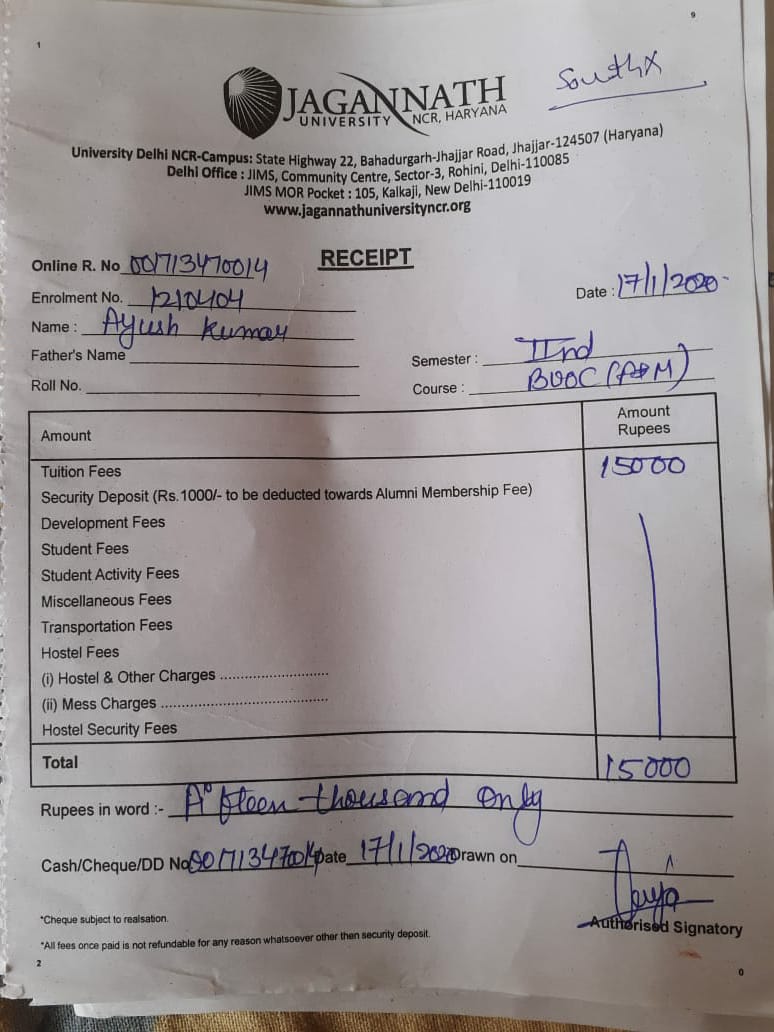 9
1
SouthX
JAGANNATH
UNIVERSITY NCR, HARYANA
University Delhi NCR-Campus: State Highway 22, Bahadurgarh-Jhajjar Road, Jhajjar-124507 (Haryana)
Delhi Office : JIMS, Community Centre, Sector-3, Rohini, Delhi-110085
JIMS MOR Pocket : 105, Kalkaji, New Delhi-110019
www.jagannathuniversityncr.org
RECEIPT
Online R. No 001713470014
Enrolment No. 1210404
Date : 17/1/2020
Name : Ayush Kumar
Father's Name
Semester : IInd
Roll No.
Course : BVOC
Amount
Amount Rupees
Tuition Fees 15000
Security Deposit (Rs.1000/- to be deducted towards Alumni Membership Fee)
Development Fees
Student Fees
Student Activity Fees
Miscellaneous Fees
Transportation Fees
Hostel Fees
(i) Hostel & Other Charges ...........................
(ii) Mess Charges ..........................................
Hostel Security Fees
Total 15000
Rupees in word :- Fifteen thousand only
Cash/Cheque/DD No 001713470014 Date 17/1/2020 Drawn on
Authorised Signatory
*Cheque subject to realsation.
*All fees once paid is not refundable for any reason whatsoever other then security deposit.
2
0